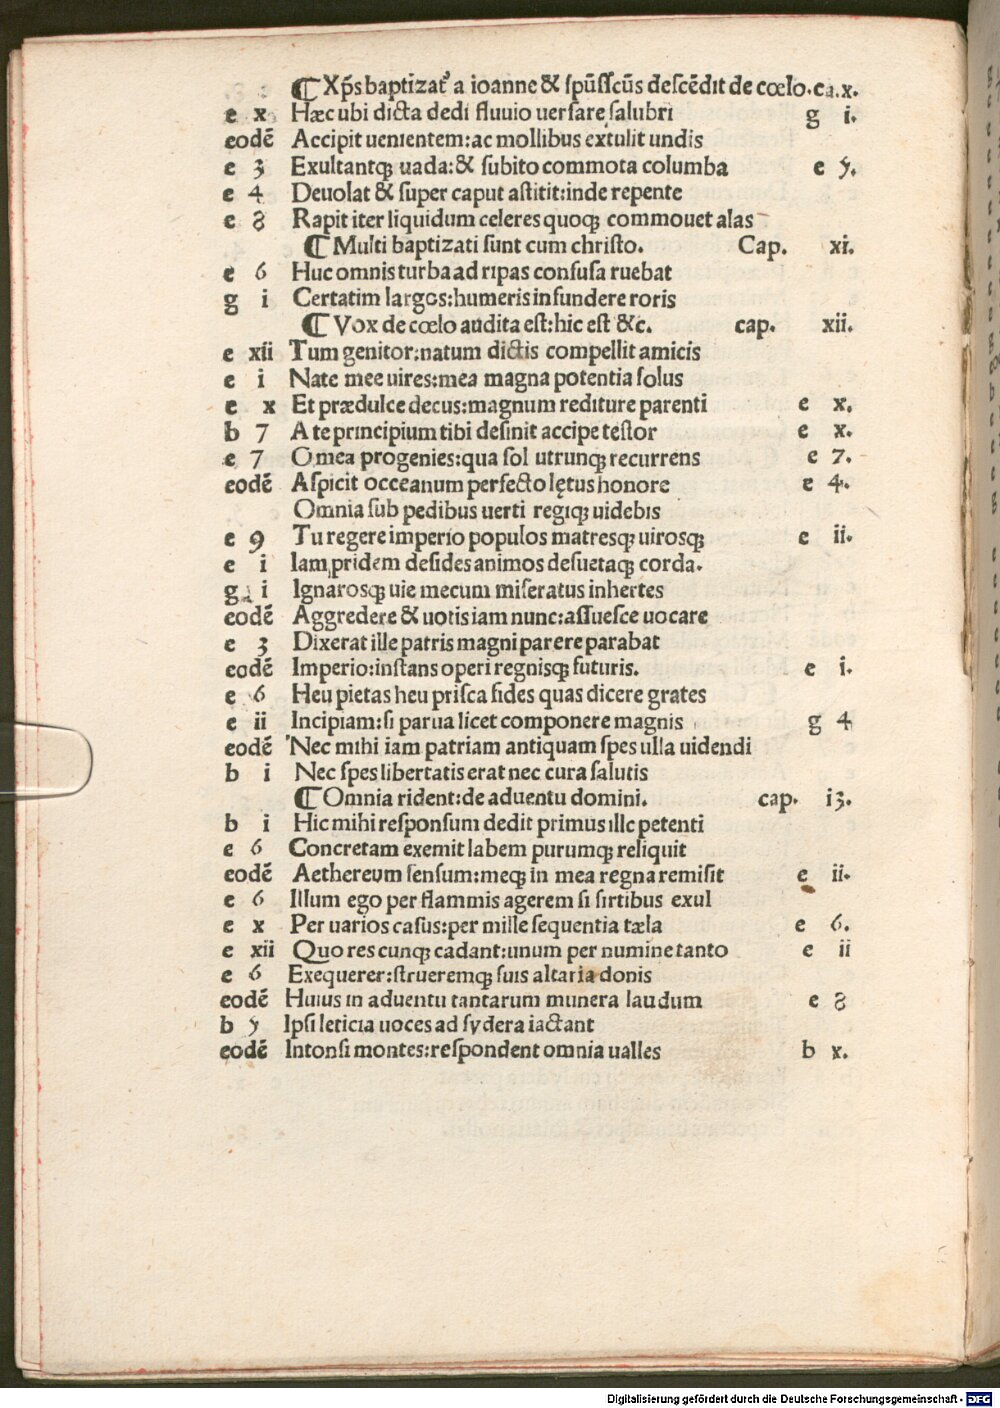 ¶ Xp̄s baptizat᷑ a ioanne & spūsscūs descēdit de cœlo. ca. x.
e x Hæc ubi dicta dedi fluuio uersare salubri g i.
eodē Accipit uenientem: ac mollibus extulit undis
e 3 Exultantꝗ uada: & subito commota columba e 5.
e 4 Deuolat & super caput astitit: inde repente
e 8 Rapit iter liquidum celeres quoꝗ commouet alas
¶ Multi baptizati sunt cum christo. Cap. xi.
e 6 Huc omnis turba ad ripas confusa ruebat
g i Certatim largos: humeris infundere roris
¶ Vox de cœlo audita est: hic est &c. cap. xii.
e xii Tum genitor: natum dictis compellit amicis
e i Nate mee uires: mea magna potentia solus
e x Et prædulce decus: magnum rediture parenti e x.
b 7 A te principium tibi desinit accipe testor e x.
e 7 O mea progenies: qua sol utrunꝗ recurrens e 7.
eodē Aspicit occeanum perfecto lętus honore e 4.
Omnia sub pedibus uerti regiꝗ uidebis
e 9 Tu regere imperio populos matresꝗ uirosꝗ e ii.
e i Iam pridem desides animos desuetaꝗ corda.
g i Ignarosꝗ uie mecum miseratus inhertes
eodē Aggredere & uotis iam nunc: assuesce uocare
e 3 Dixerat ille patris magni parere parabat
eodē Imperio: instans operi regnisꝗ futuris. e i.
e 6 Heu pietas heu prisca fides quas dicere grates
e ii Incipiam: si parua licet componere magnis g 4
eodē Nec mihi iam patriam antiquam spes ulla uidendi
b i Nec spes libertatis erat nec cura salutis
¶ Omnia rident: de aduentu domini. cap. i3.
b i Hic mihi responsum dedit primus ille petenti
e 6 Concretam exemit labem purumꝗ reliquit
eodē Aethereum sensum: meꝗ in mea regna remisit e ii.
e 6 Illum ego per flammis agerem si sirtibus exul
e x Per uarios casus: per mille sequentia tæla e 6.
e xii Quo res cunꝗ cadant: unum per numine tanto e ii
e 6 Exequerer: strueremꝗ suis altaria donis
eodē Huius in aduentu tantarum munera laudum e 8
b 5 Ipsi leticia uoces ad sydera iactant
eodē Intonsi montes: respondent omnia ualles b x.
Digitalisierung gefördert durch die Deutsche Forschungsgemeinschaft - DFG